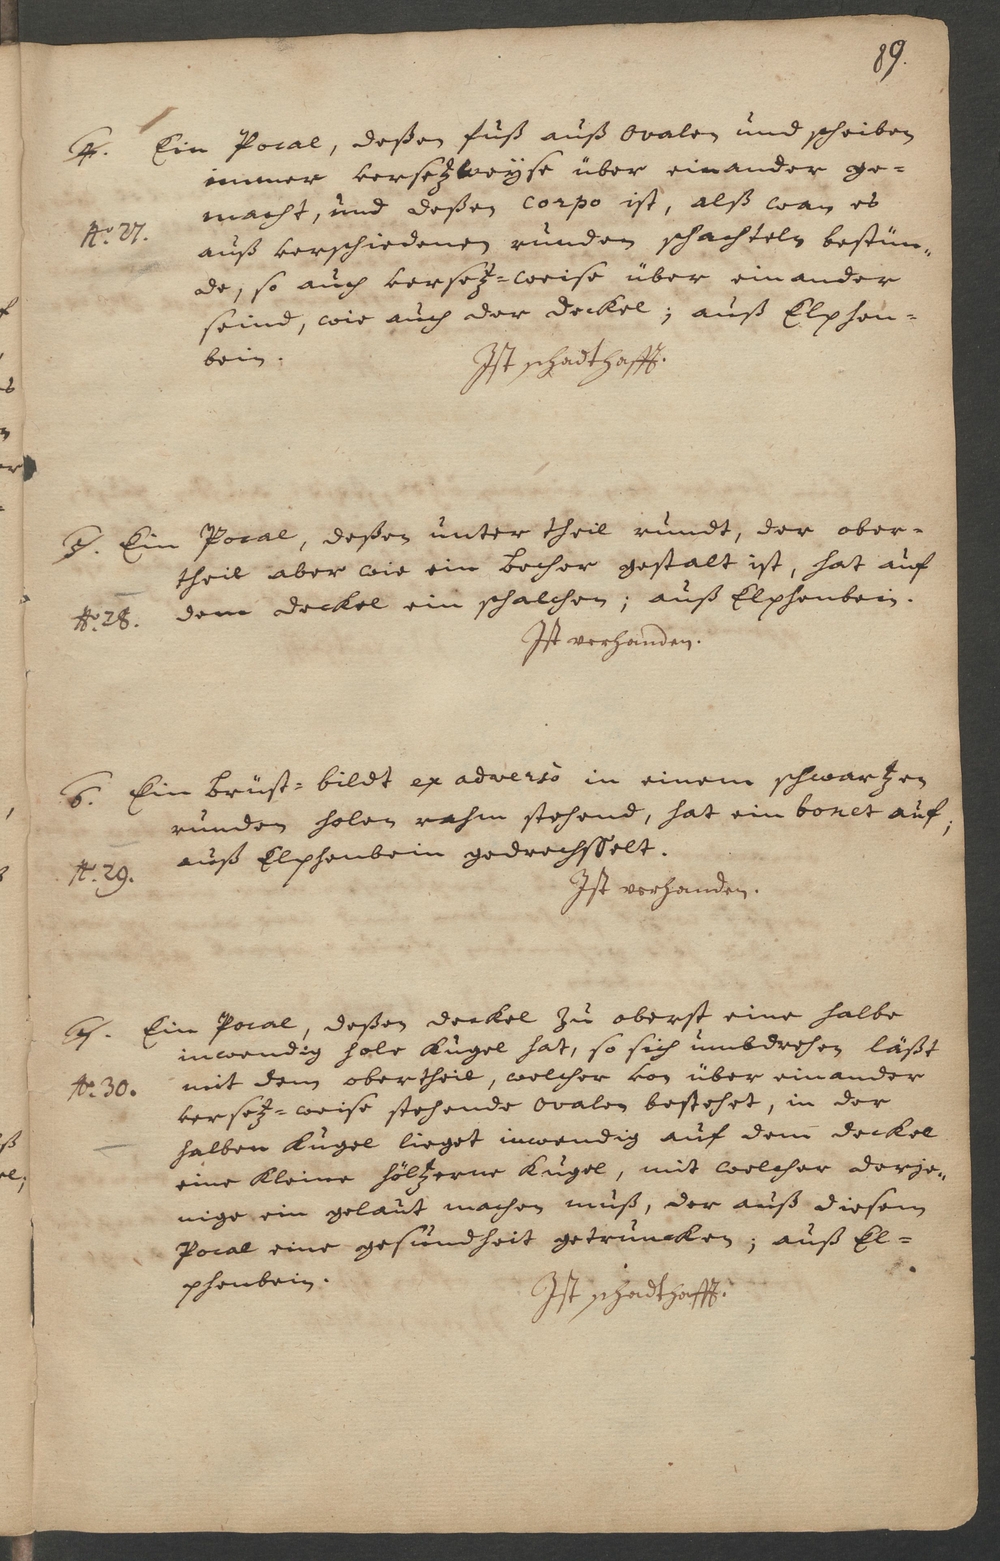 89.
4. Ein Pocal, deßen fuß auß Ovalen und scheiben
immer versetzweÿse über einander ge=
macht, und deßen corpo ist, alß wan es
No. 27.
auß verschiedenen runden schachteln bestün=
de, so auch versetz=weise über einander
seind, wie auch der deckel; auß Elphen=
bein.
Ist schadthafft.
5. Ein Pocal, deßen unter theil rundt, der ober=
theil aber wie ein becher gestalt ist, hat auf
No. 28. dem deckel ein schälchen; auß Elphenbein.
Ist vorhanden.
6. Ein brust=bildt ex adverso in einem schwartzen
runden holen rahm stehend, hat ein bonet auf;
No. 29. auß Elphenbein gedrechsselt.
Ist vorhanden.
7. Ein Pocal, deßen deckel zu oberst eine halbe
inwendig hole Kugel hat, so sich umbdrehen läßt
No. 30. mit dem obertheil, welcher von über einander
versetz=weise stehende Ovalen bestehet, in der
halben Kugel lieget inwendig auf dem deckel
eine kleine höltzerne Kugel, mit welcher derje=
nige ein gelaut machen muß, der auß diesem
Pocal eine gesundheit getruncken; auß El=
phenbein.
Ist schadthafft.